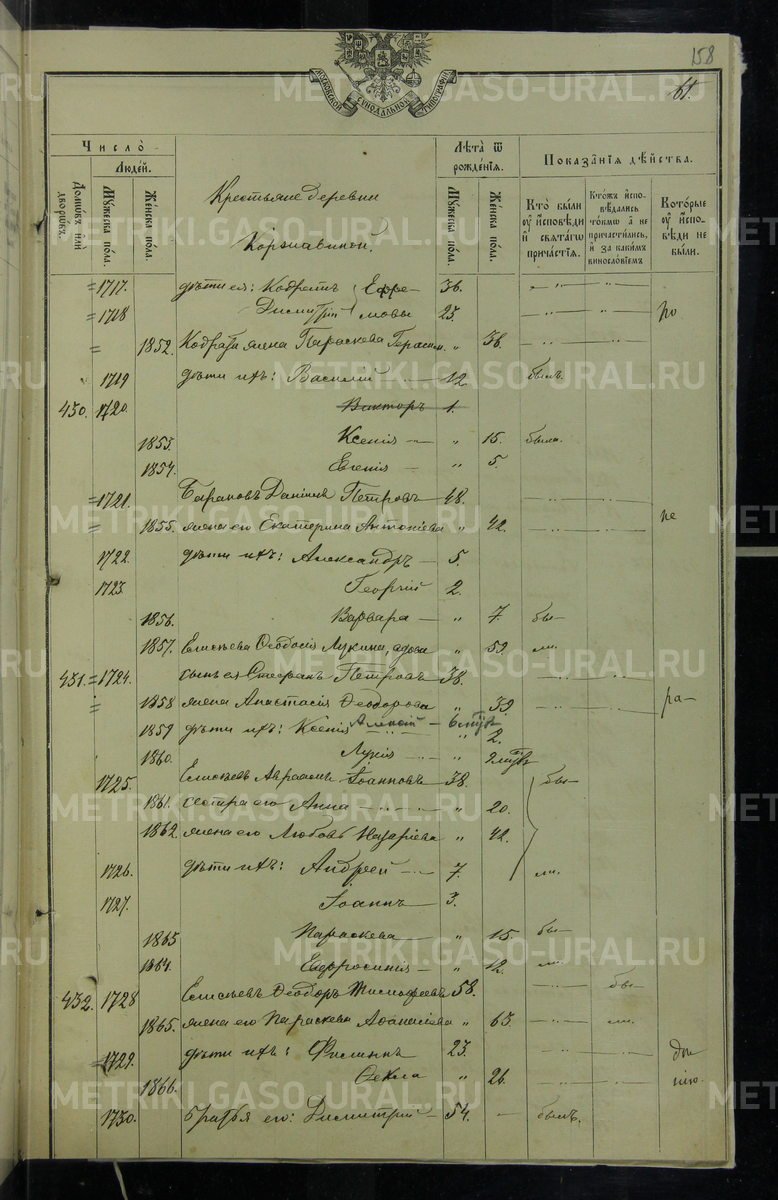 158
61.
МОСКОВСКОЙ СѴНОДАЛЬНОЙ ТИПОГРАФІИ
METRIKI.GASO-URAL.RU
Число̀
Людей.
Домѡвъ или дворѡвъ.
Мꙋжеска пола.
Женска пола.
Крестьяне деревни
Коржавиной.
Лѣта ѿ рожденїѧ.
Мꙋжеска пола.
Женска пола.
Показанїѧ дѣйства.
Кто были оу исповѣди и свѧтагѡ причастїѧ.
Ктожъ исповѣдались токмѡ а не причастились, и за какимъ винословїемъ
Которые оу исповѣди не были.
1717. дѣти ея: Кодратъ Ефре- 36. — „ — „
1718 Димитрій мовы 23. — „ — ро
1852. Кодрата жена Параскева Герасим. „ 36. — „ —
1719 дѣти ихъ: Василій — 12 былъ.
430. 1720. Викторъ 1.
1853. Ксенія — „ 15. была.
1854. Евгенія — „ 5.
1721. Барановъ Даніилъ Петровъ — 48. — „ —
1855. жена его Екатерина Антоніева „ 42. — „ — не
1722. дѣти ихъ: Александръ — 5.
1723 Георгій 2.
1856. Варвара — „ 7. бы—
1857. Елисѣева Ѳеодосія Лукина, вдова „ 59 ли.
431. 1724. сынъ ея Стефанъ Петровъ 38. — „ —
1858 жена Анастасія Ѳеодорова „ 39 — „ — ра—
1859 дѣти ихъ: Ксенія Алексій — 6 мцѣв „ 2.
1860. Лукія — „ 2 мцѣв
1725. Елисѣевъ Авраамъ Іоанновъ — 38. бы—
1861. сестра его Анна — „ 20.
1862 жена его Любовь Назаріева „ 42.
1726. дѣти ихъ: Андрей — 7. ли.
1727. Іоаннъ — 3.
1863 Параскева — „ 15. бы—
1864. Евфросинія — „ 12. ли.
432. 1728 Елисѣевъ Ѳеодоръ Тимофеевъ 58. — „ — бы—
1865. жена его Параскева Аѳанасіева „ 63. — „ — ли.
1729. дѣти ихъ: Филиппъ 23. — „ —
1866. Ѳекла „ 26. — „ — нію.
1730. братья его: Димитрій — 54. — былъ.